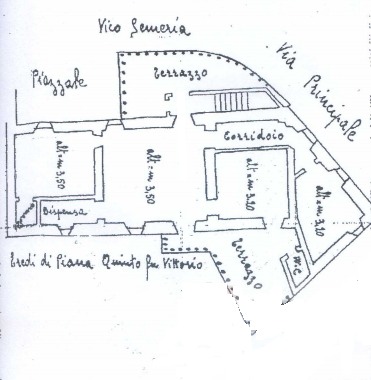 Vico Semeria
Via Principale
Piazzale
Terrazzo
Corridoio
alt=m 3,50
alt=m 3,50
alt=m 3,20
alt=m 3,20
Dispensa
Eredi di Piana Quinto fu Vittorio
Terrazzo
W.C